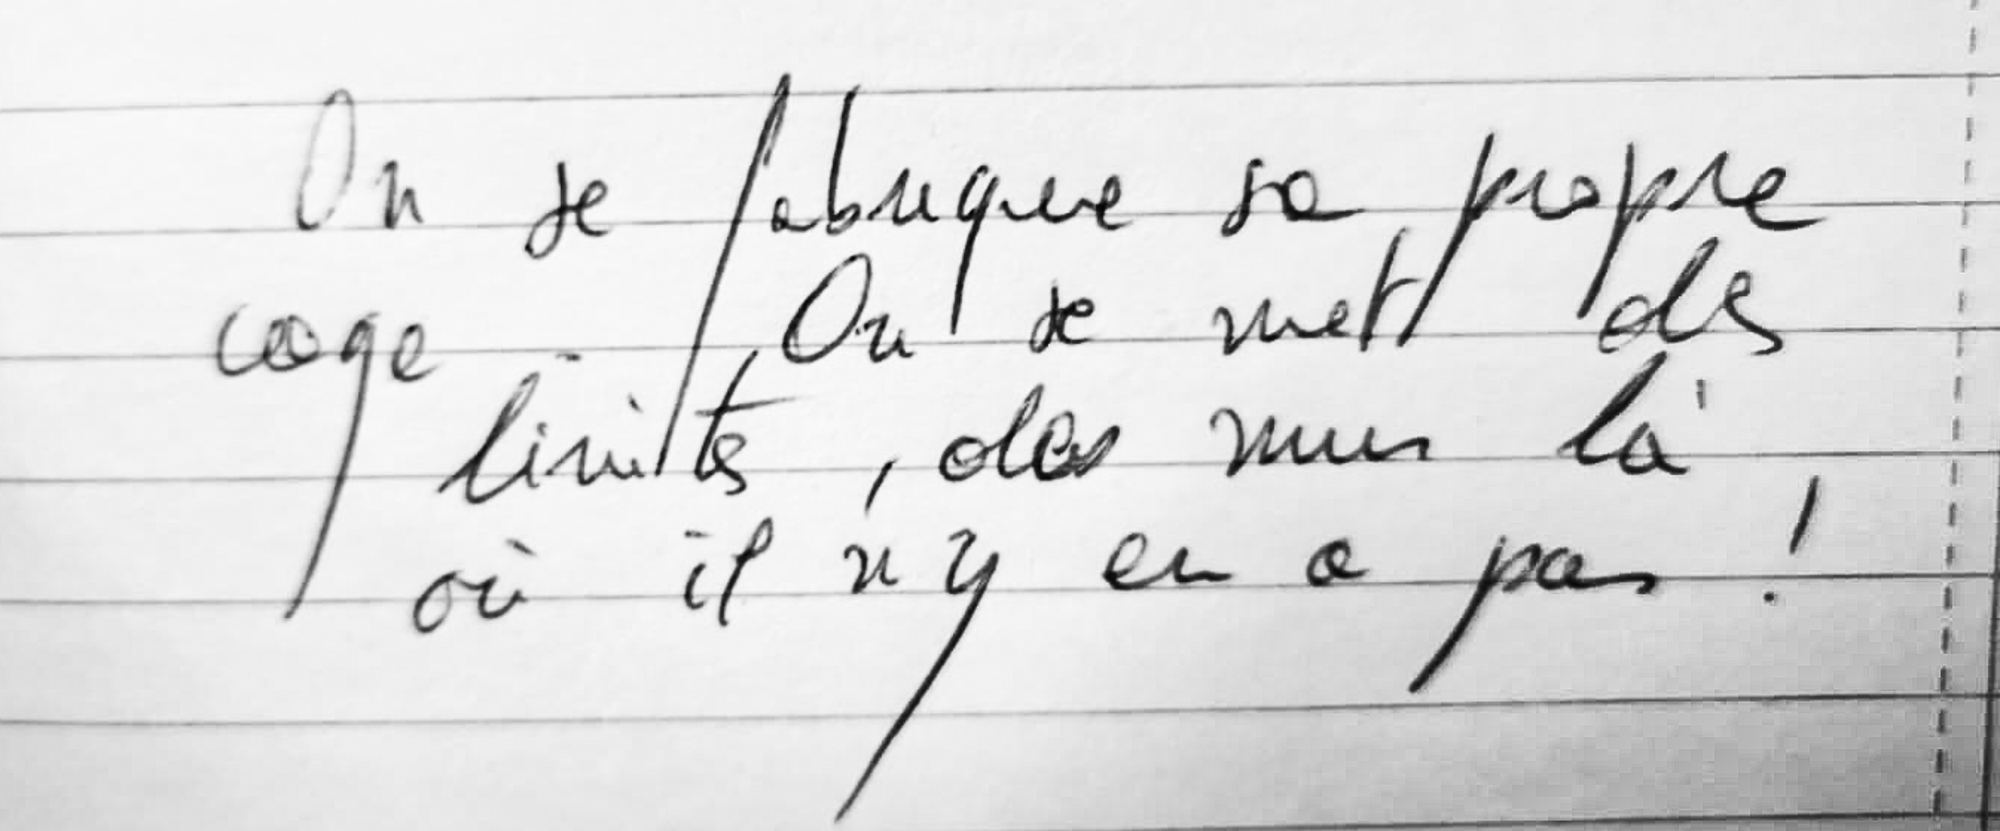 On se fabrique sa propre
cage. On se met des
limites, des murs là
où il n'y en a pas !